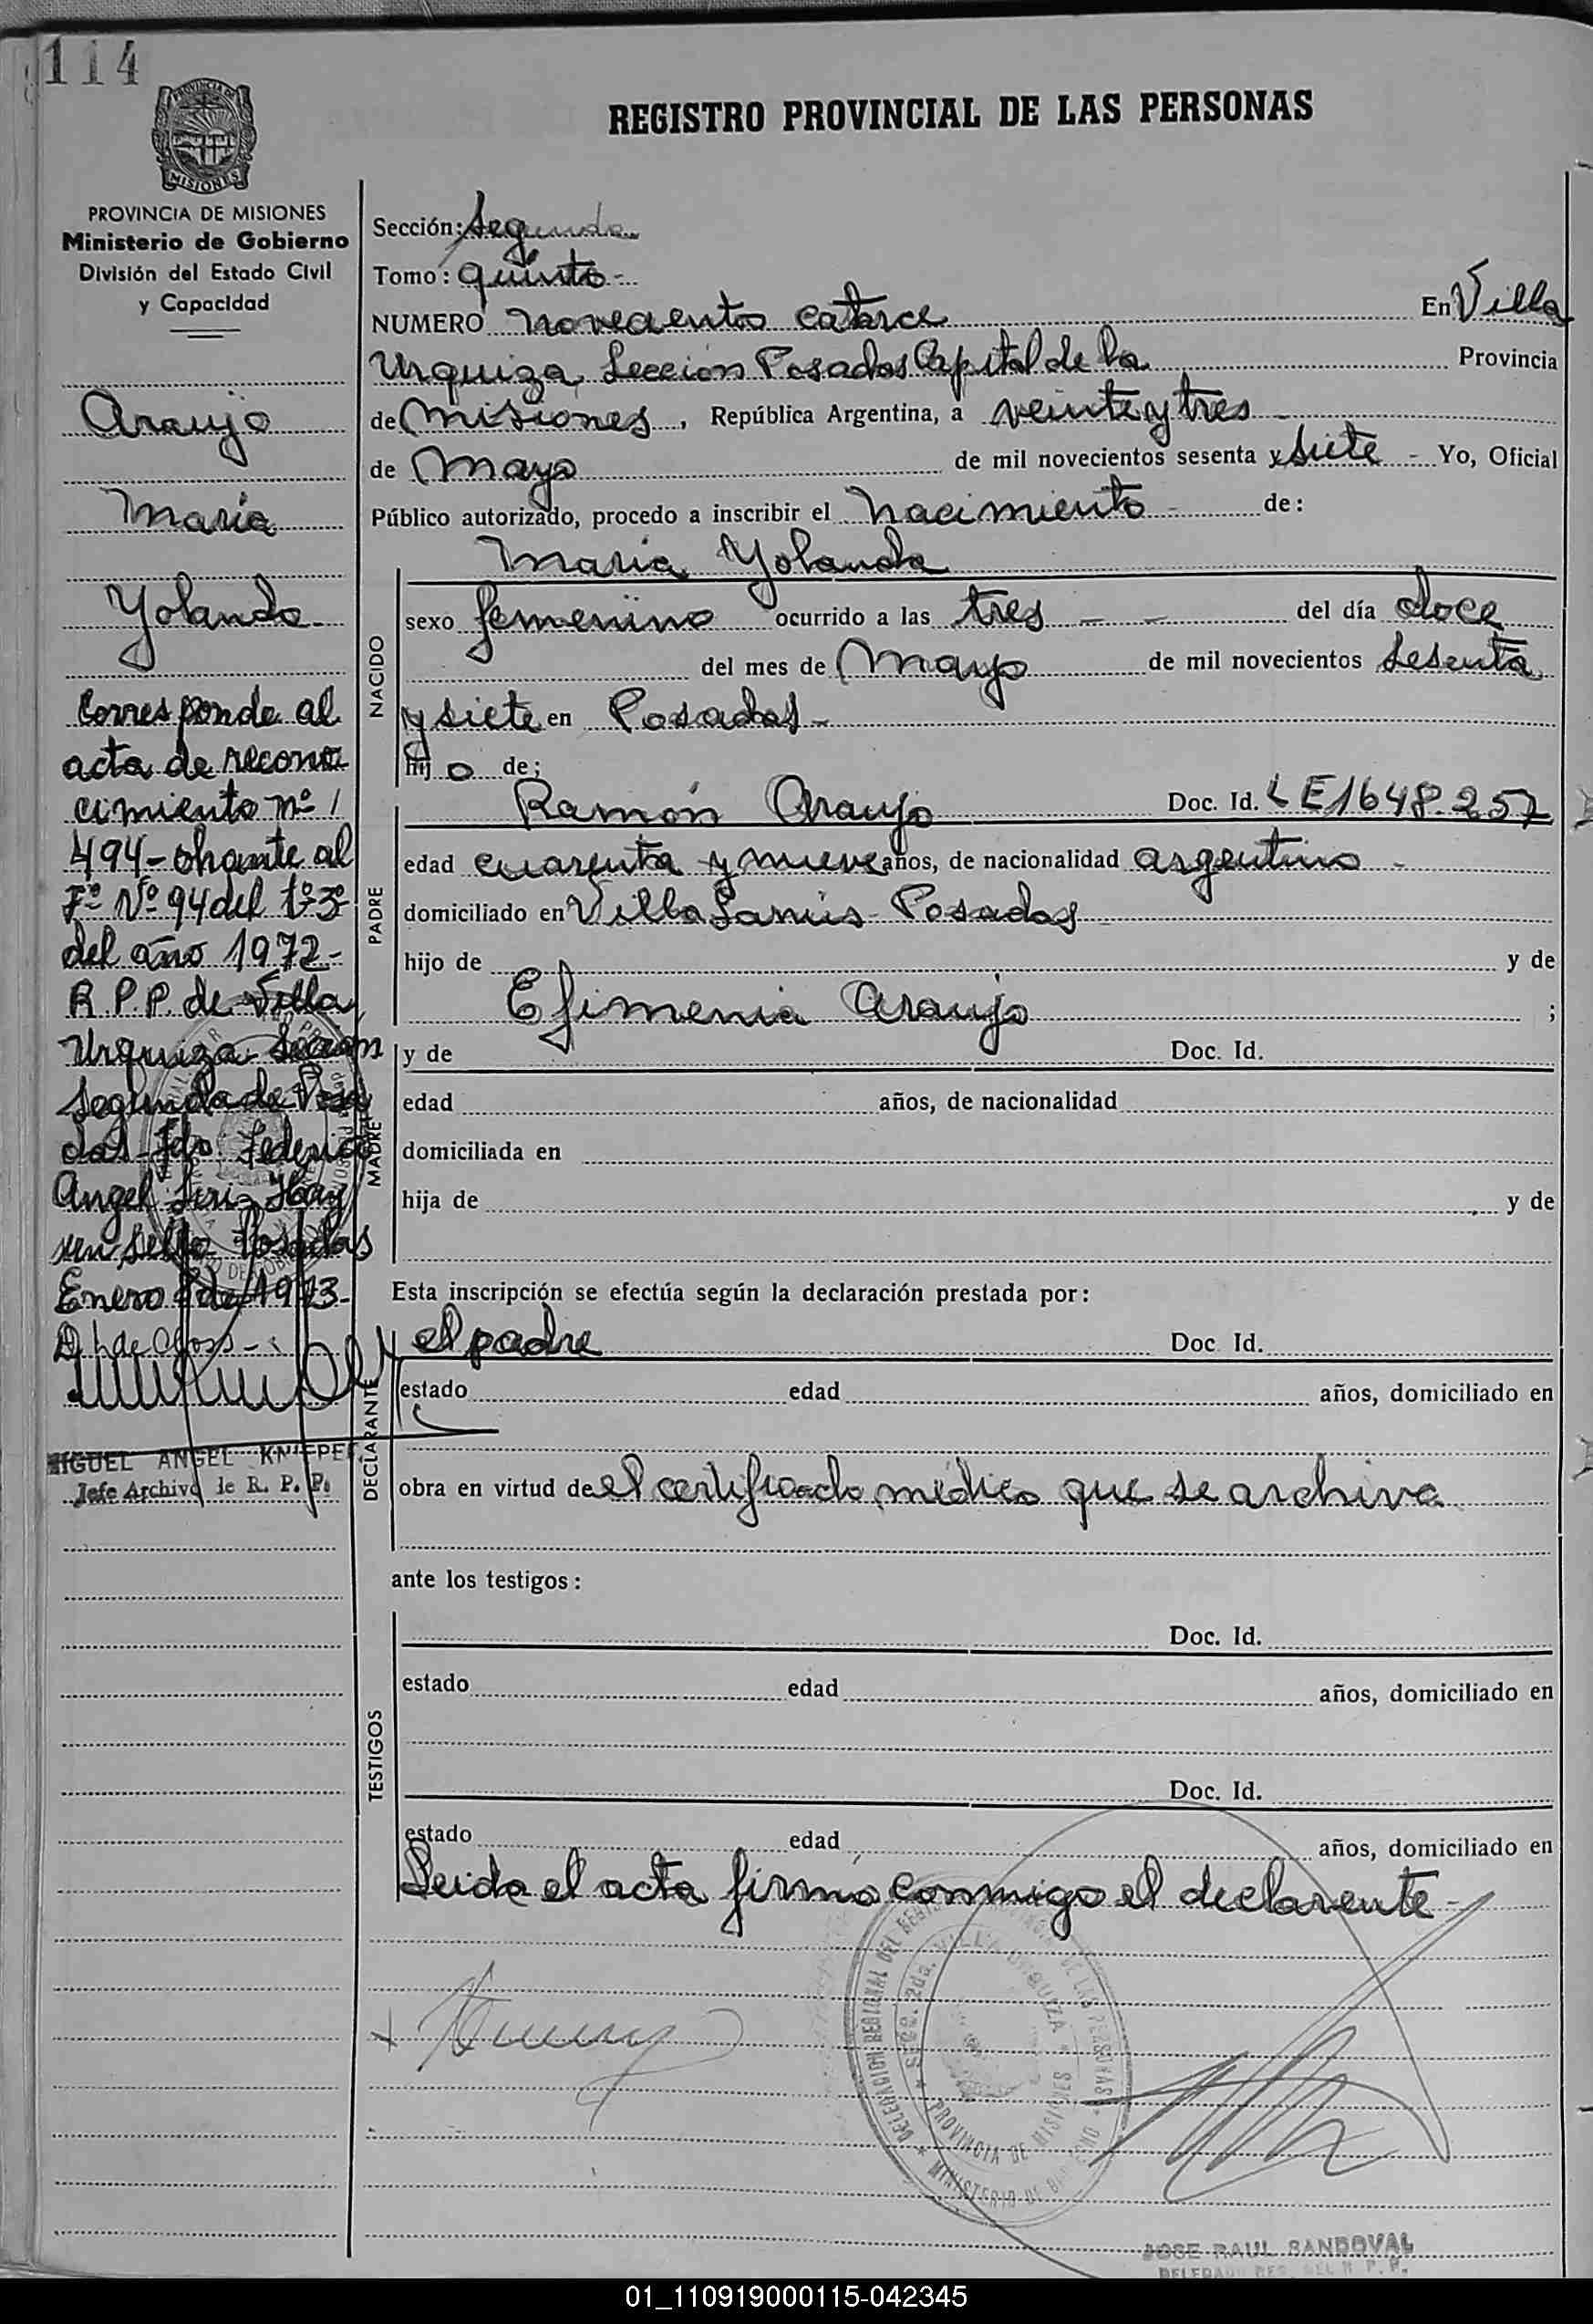 114
PROVINCIA DE
MISIONES
REGISTRO PROVINCIAL DE LAS PERSONAS
PROVINCIA DE MISIONES
Ministerio de Gobierno
División del Estado Civil
y Capacidad
Araujo
Maria
Yolanda
Corresponde al
acta de recono
cimiento nº
494-obrante al
Fº Nº 94 del tº 3º
del año 1972-
R.P.P. de Villa
Urquiza Sección
Segunda de Posa
das-Fdo. Federico
Angel Hay
un sello Posadas
Enero de 1973-
MIGUEL ANGEL
Jefe Archivo de R. P. P.
Sección: Segunda
Tomo: quinto-
NUMERO novecientos catorce En Villa
Urquiza, Sección Posadas Capital de la Provincia
de Misiones, República Argentina, a veinte y tres
de Mayo de mil novecientos sesenta y siete - Yo, Oficial
Público autorizado, procedo a inscribir el nacimiento de:
Maria Yolanda
NACIDO
sexo femenino ocurrido a las tres del día doce
del mes de Mayo de mil novecientos sesenta
y siete en Posadas-
hij o de:
PADRE
Ramón Araujo Doc. Id. LE1648.257
edad cuarenta y nueve años, de nacionalidad argentino -
domiciliado en Villa Lanús-Posadas
hijo de y de
Efimenia Araujo ;
MADRE
y de Doc. Id.
edad años, de nacionalidad
domiciliada en
hija de y de
Esta inscripción se efectúa según la declaración prestada por:
DECLARANTE
el padre Doc. Id.
estado edad años, domiciliado en
obra en virtud de el certificado médico que se archiva
ante los testigos:
TESTIGOS
Doc. Id.
estado edad años, domiciliado en
Doc. Id.
estado edad años, domiciliado en
Leida el acta firma conmigo el declarente -
DELEGACION REGIONAL DEL REGISTRO PROVINCIAL DE LAS PERSONAS
SECC. 2da. VILLA URQUIZA
PROVINCIA DE MISIONES
MINISTERIO DE GOBIERNO
JOSE RAUL SANDOVAL
DELEGADO REG. DEL R. P. P.
01_110919000115-042345